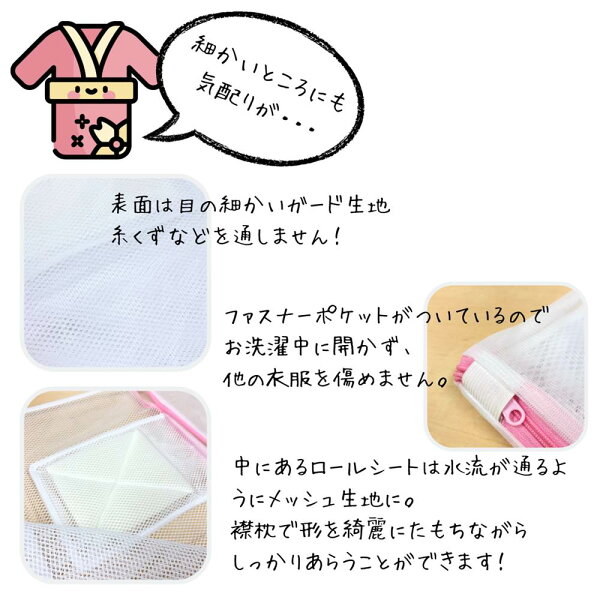 細かいところにも
気配りが・・・
表面は目の細かいガード生地
糸くずなどを通しません！
ファスナーポケットがついているので
お洗濯中に開かず、
他の衣服を傷めません。
中にあるロールシートは水流が通るよ
うにメッシュ生地に。
襟枕で形を綺麗にたもちながら
しっかりあらうことができます！